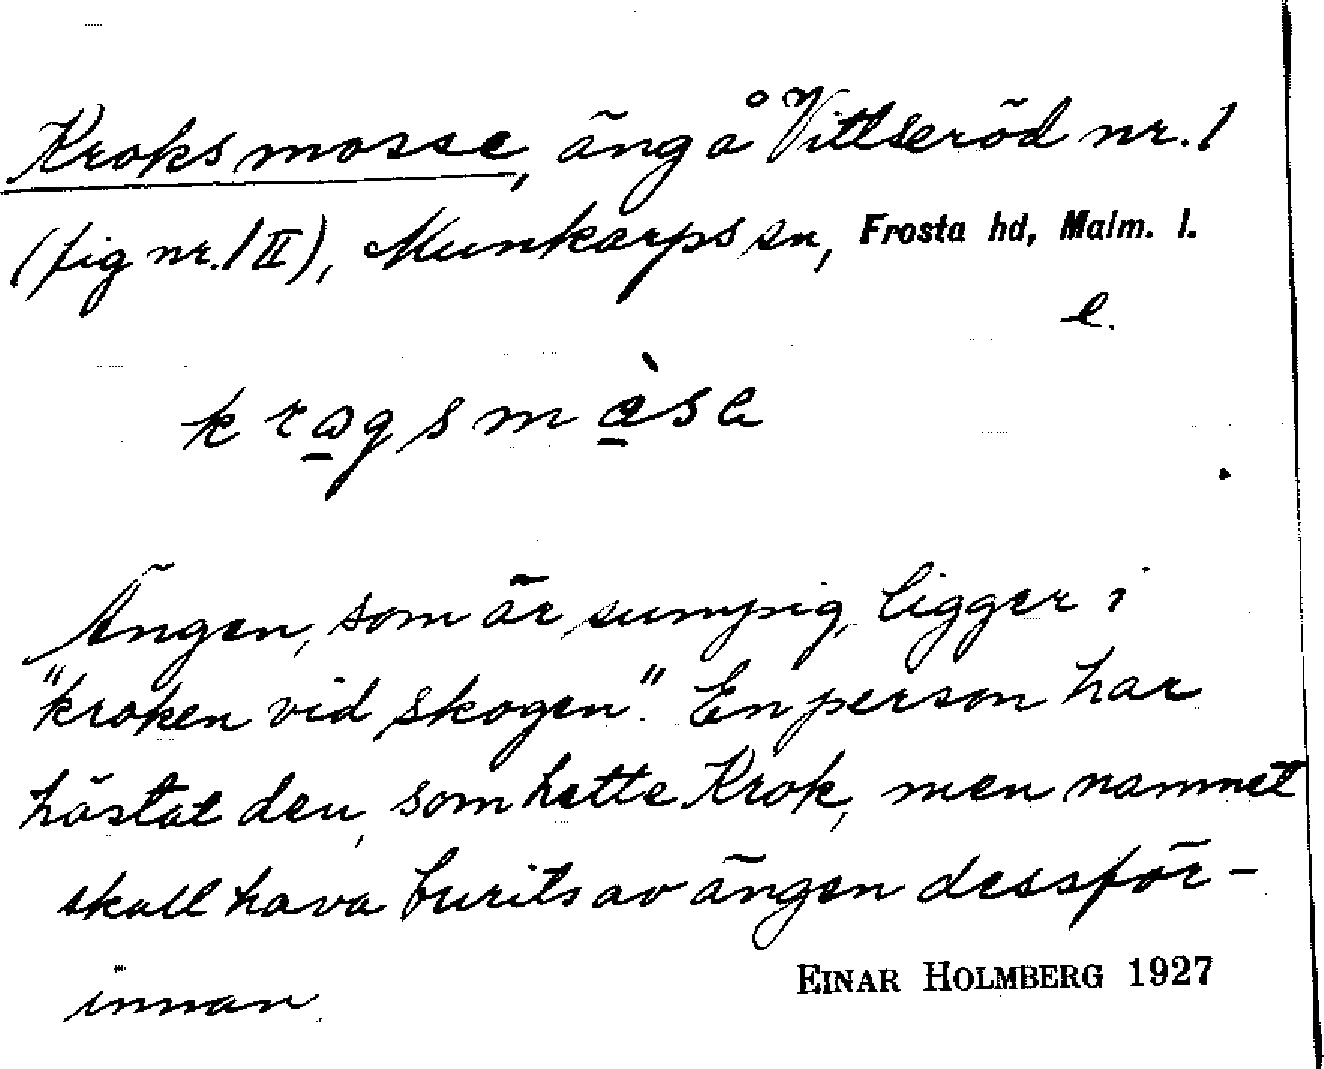 Kroksmosse, äng å Vittseröd nr. 1
(fig nr. 1 II), Munkarps sn, Frosta hd, Malm. l.
e.
Ängen, som är sumpig, ligger i
"kroken vid skogen". En person har
höstat den, som hette Krok, men namnet
skall hava burits av ängen dessför-
innan.
EINAR HOLMBERG 1927